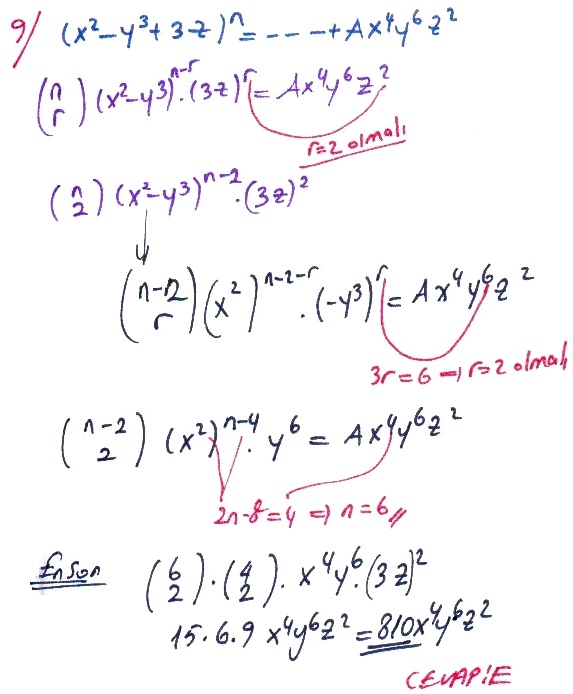 9/ (x²-y³+3z)ⁿ = ---+Ax⁴y⁶z²
(n r) (x²-y³)ⁿ⁻ʳ.(3z)ʳ = Ax⁴y⁶z²
r=2 olmalı
(n 2) (x²-y³)ⁿ⁻².(3z)²
(n-2 r) (x²)ⁿ⁻²⁻ʳ.(-y³)ʳ = Ax⁴y⁶z²
3r=6 ⇒ r=2 olmalı
(n-2 2) (x²)ⁿ⁻⁴.y⁶ = Ax⁴y⁶z²
2n-8=4 ⇒ n=6//
En son (6 2).(4 2).x⁴y⁶.(3z)²
15.6.9 x⁴y⁶z² = 810x⁴y⁶z²
CEVAP:E